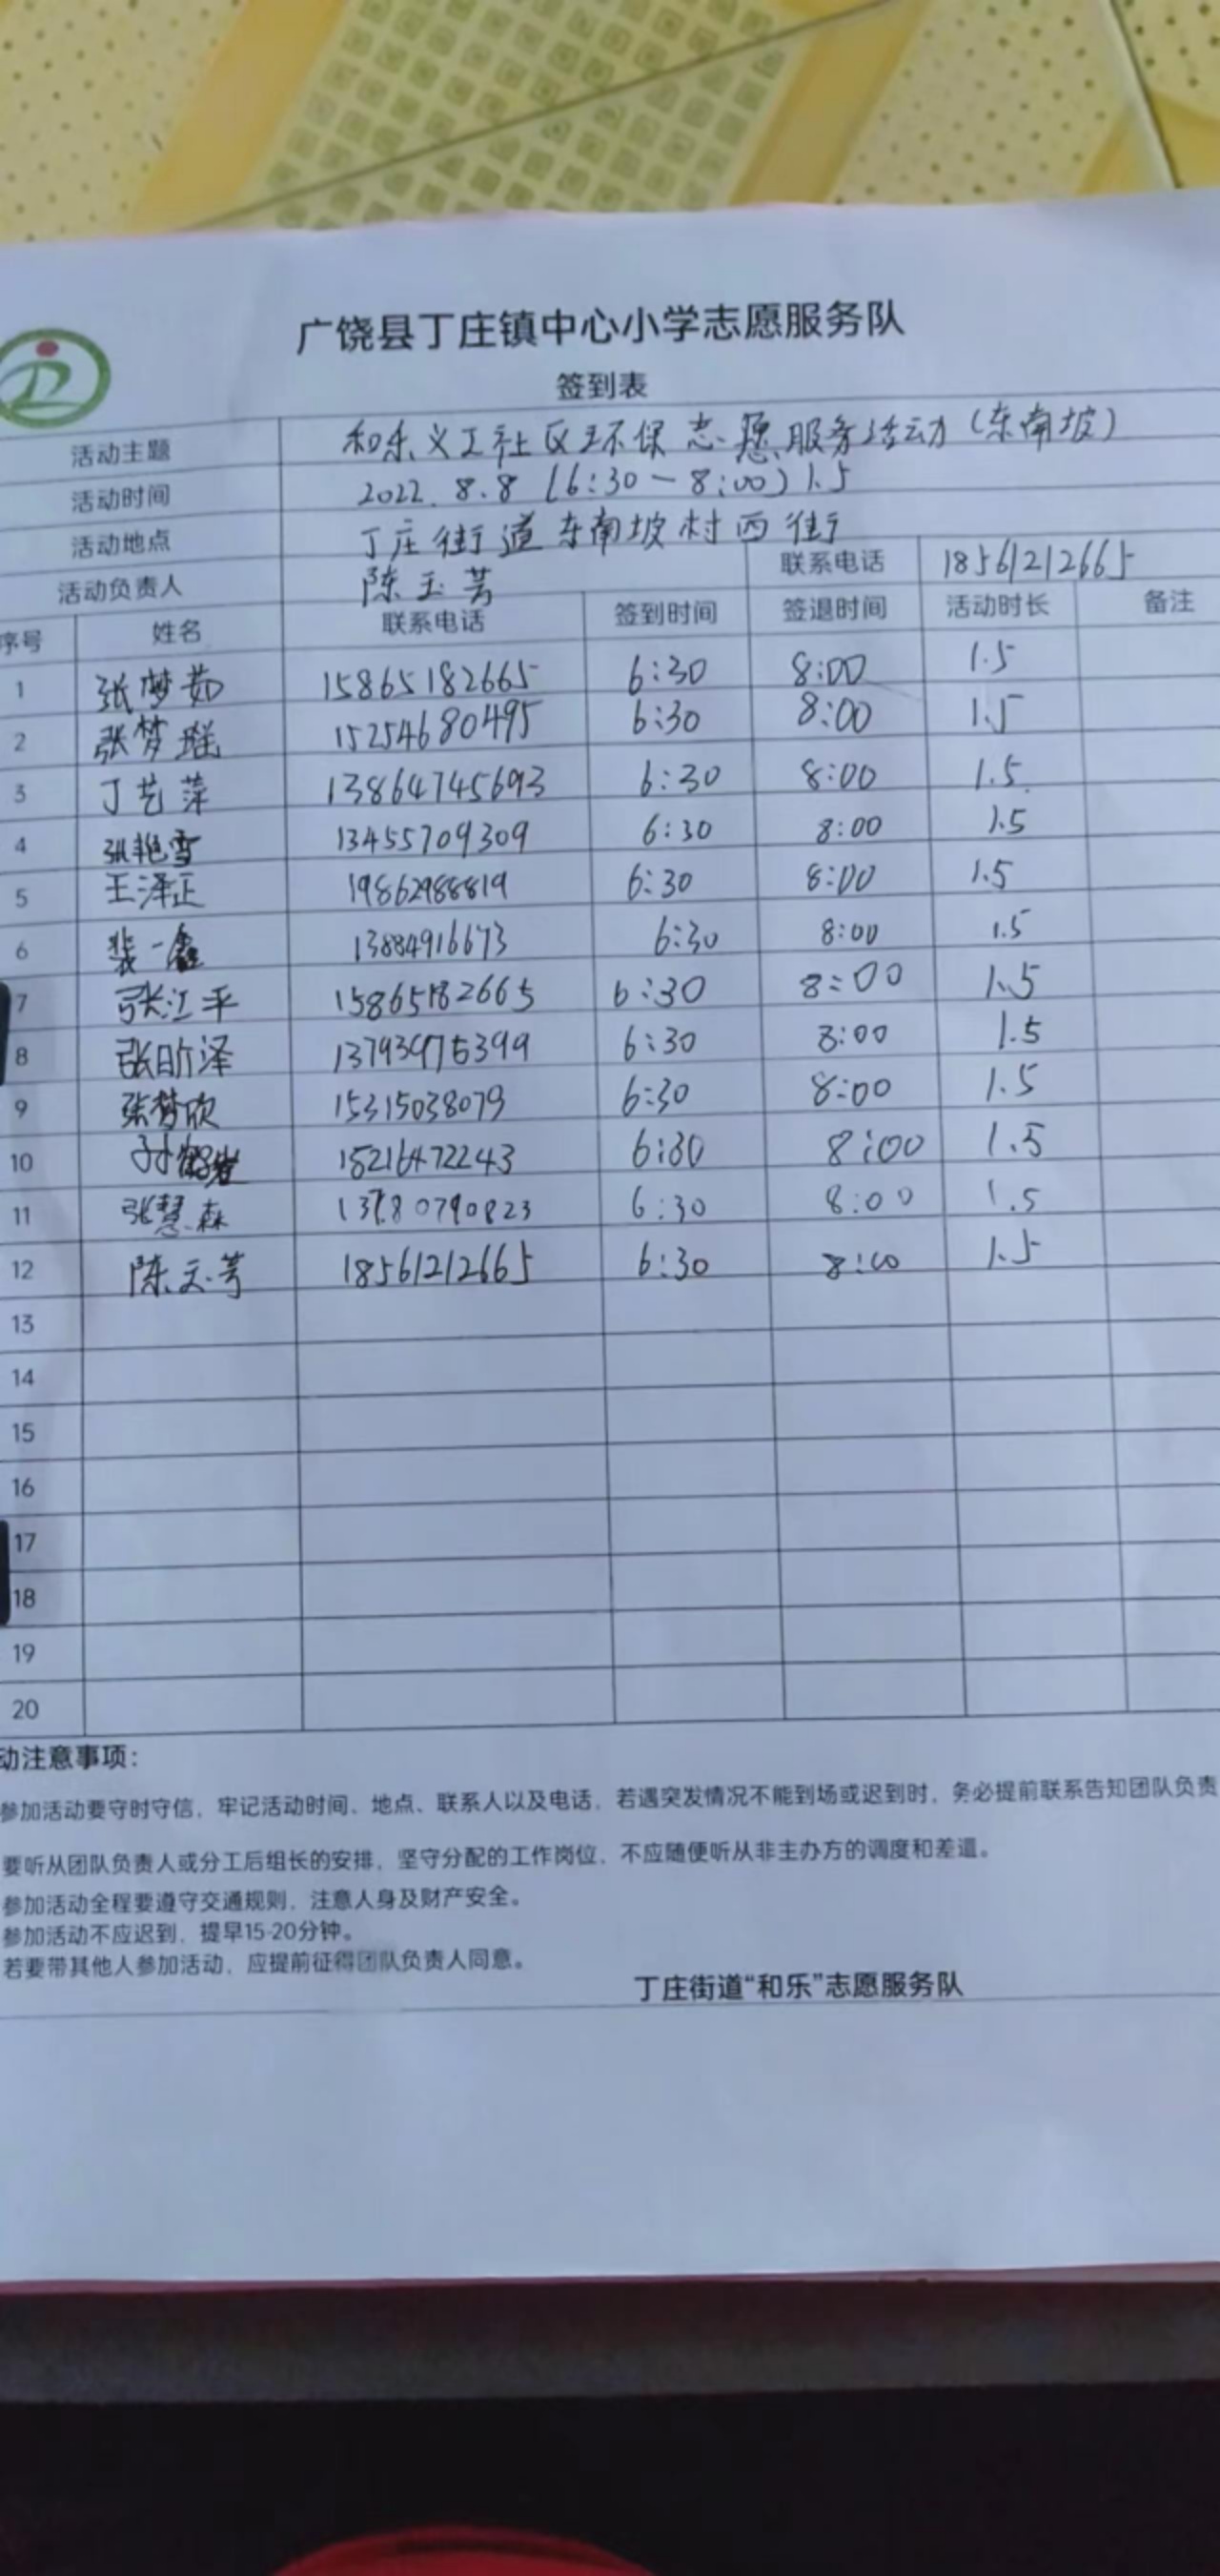 广饶县丁庄镇中心小学志愿服务队
签到表
活动主题 和乐义工社区环保志愿服务活动(东南坡)
活动时间 2022.8.8 (6:30-8:00) 1.5
活动地点 丁庄街道东南坡村西街
活动负责人 陈玉芳 联系电话 18561212665
序号 姓名 联系电话 签到时间 签退时间 活动时长 备注
1 张梦茹 15865182665 6:30 8:00 1.5
2 张梦瑶 15254680495 6:30 8:00 1.5
3 丁艺萍 13864745693 6:30 8:00 1.5
4 张艳雪 13455709309 6:30 8:00 1.5
5 王泽正 19862988819 6:30 8:00 1.5
6 裴一鑫 13884916673 6:30 8:00 1.5
7 张江平 15865182665 6:30 8:00 1.5
8 张昕泽 13793975399 6:30 8:00 1.5
9 张梦欣 15315038079 6:30 8:00 1.5
10 孙 15216472243 6:30 8:00 1.5
11 张慧森 6:30 8:00 1.5
12 陈玉芳 18561212665 6:30 8:00 1.5
13
14
15
16
17
18
19
20
动注意事项:
参加活动要守时守信,牢记活动时间、地点、联系人以及电话,若遇突发情况不能到场或迟到时,务必提前联系告知团队负责
要听从团队负责人或分工后组长的安排,坚守分配的工作岗位,不应随便听从非主办方的调度和差遣。
参加活动全程要遵守交通规则,注意人身及财产安全。
参加活动不应迟到,提早15-20分钟。
若要带其他人参加活动,应提前征得团队负责人同意。
丁庄街道“和乐”志愿服务队